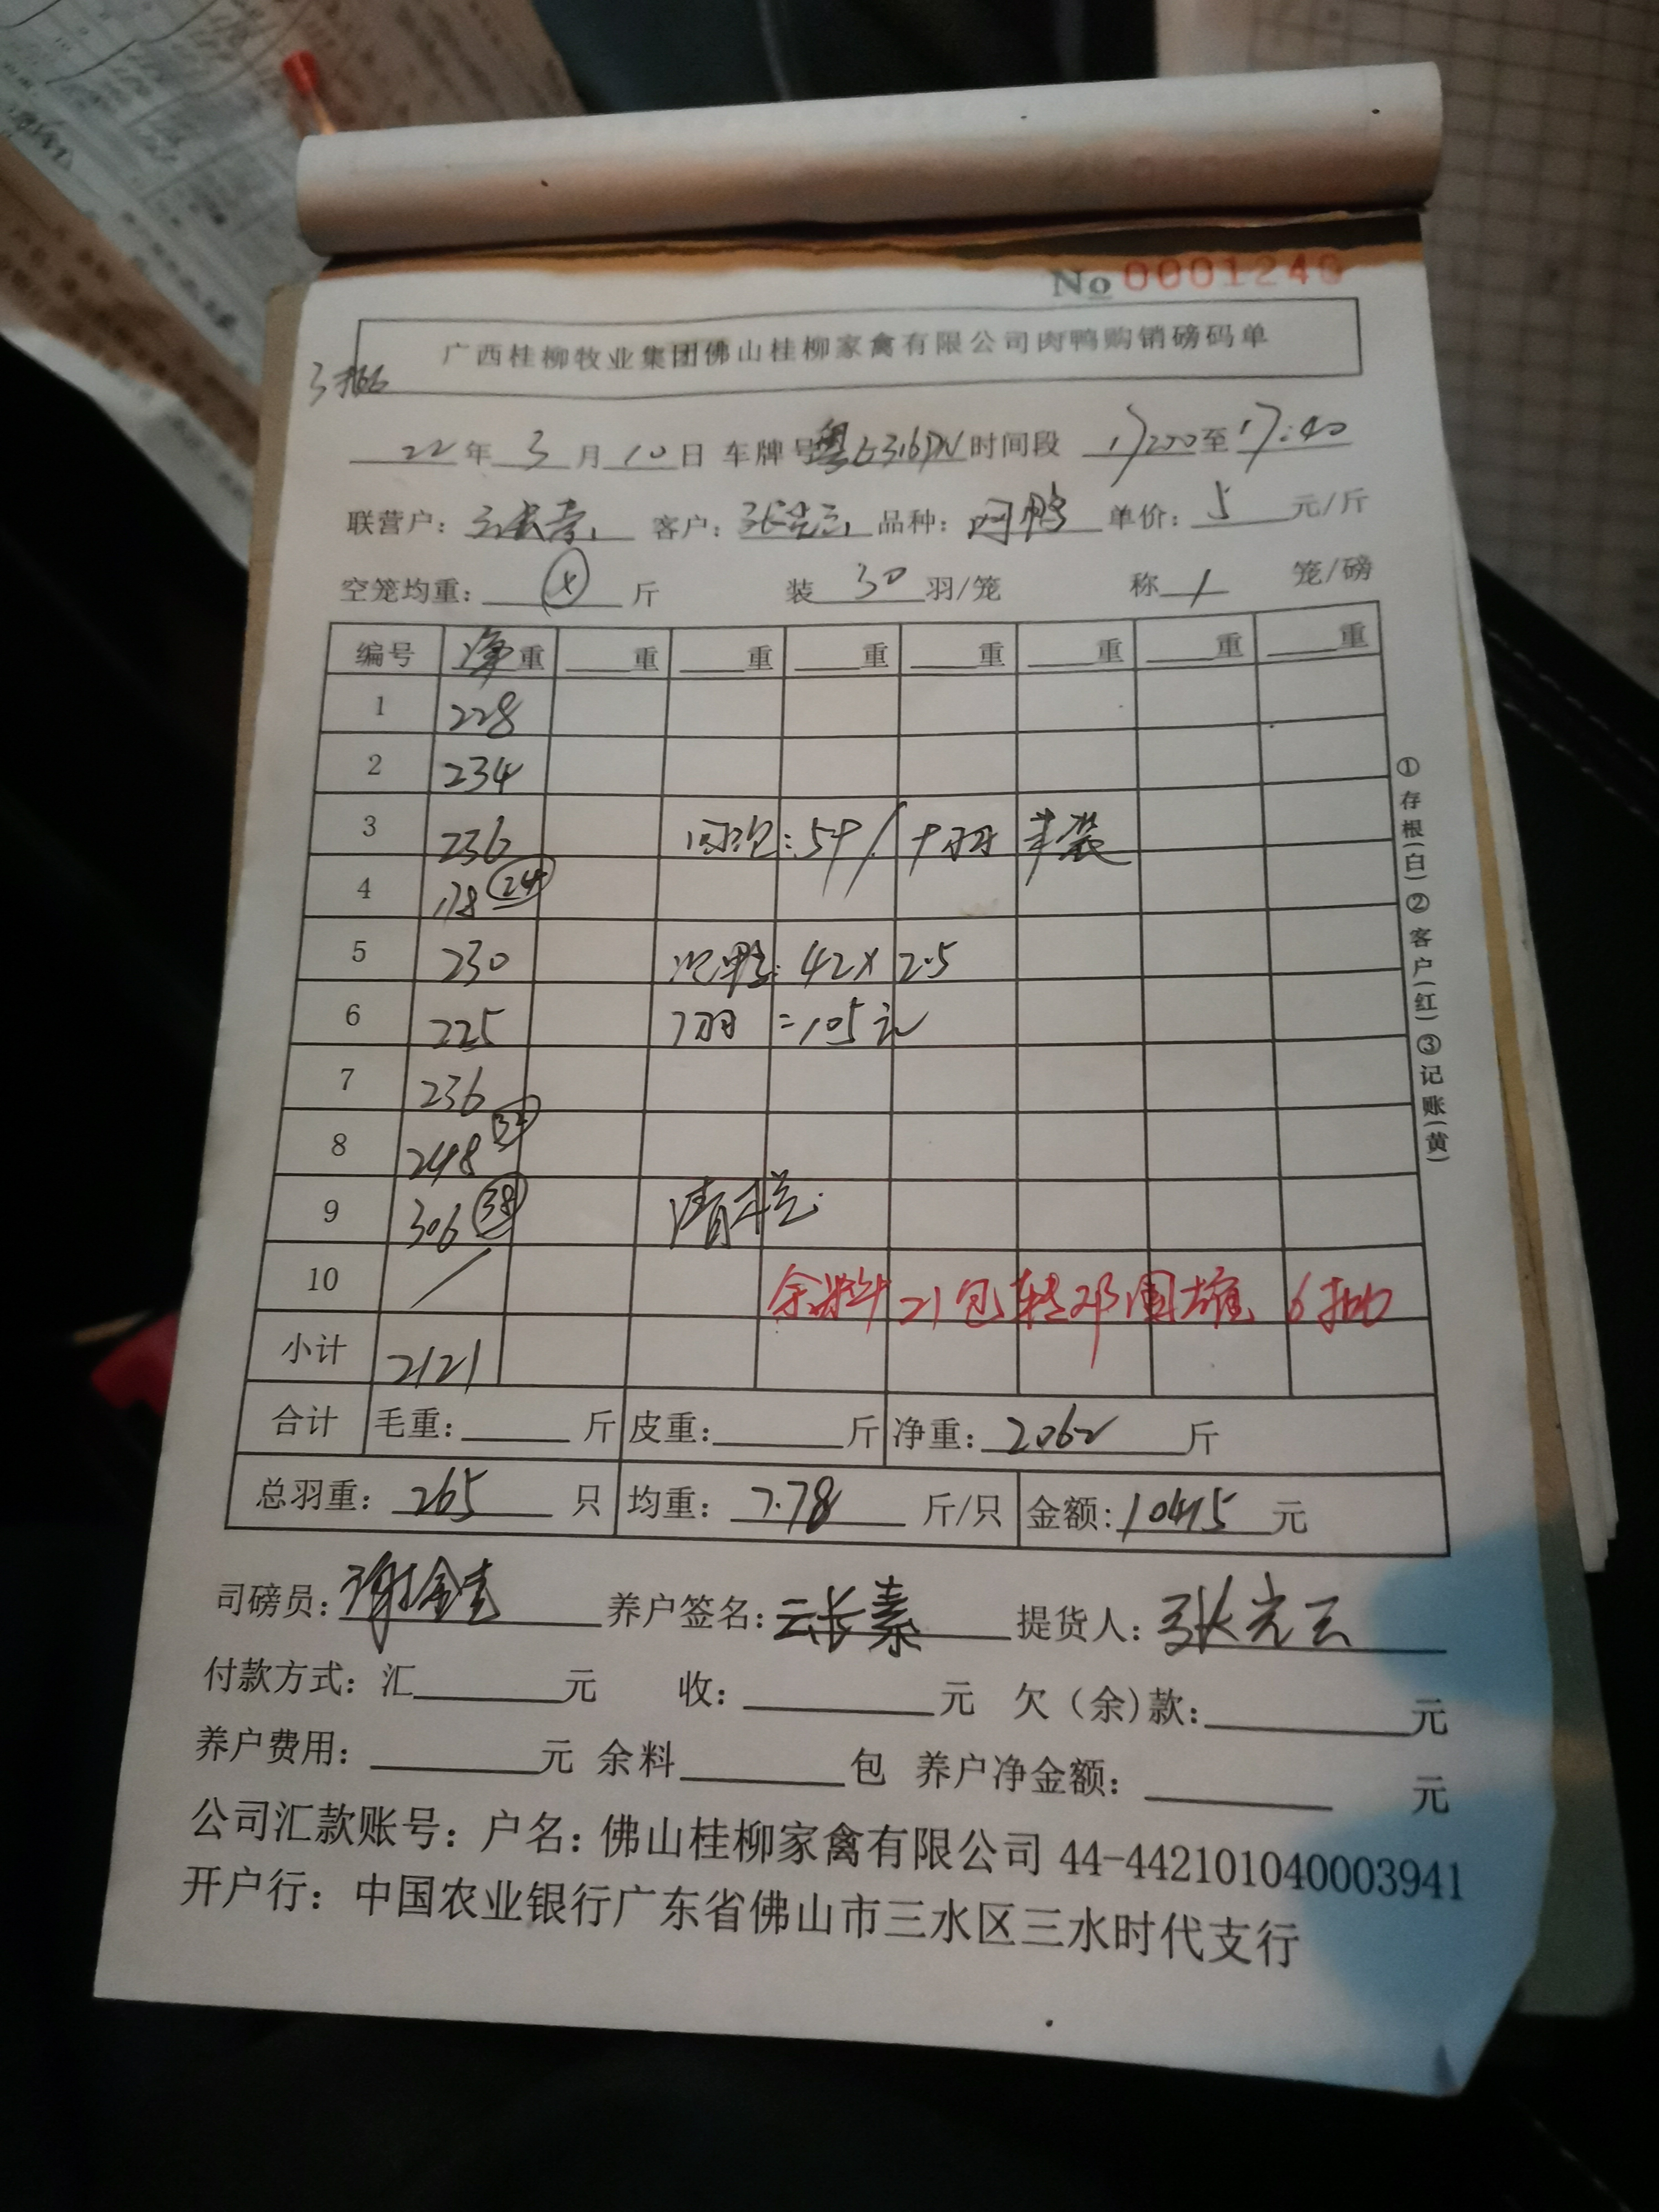 No 0001240
广西桂柳牧业集团佛山桂柳家禽有限公司肉鸭购销磅码单
3批
22年3月10日 车牌号粤 时间段 17:00至17:40
联营户：云长素 客户：张光云 品种：肉鸭 单价：5元/斤
空笼均重：斤 装30羽/笼 称1笼/磅
编号 净重 重 重 重 重 重 重 重
1 228
2 234
3 236 : 5斤/十羽 半装
4 178 24
5 230 次鸭: 42×2.5
6 225 7羽 =105元
7 236
8 248
9 306 38 清栏
10 /
余料 21包 转邓国雄 6批
小计 2121
合计 毛重：斤 皮重：斤 净重：2062斤
总羽重：265只 均重：7.78斤/只 金额：10415元
司磅员： 养户签名：云长素 提货人：张光云
付款方式：汇元 收：元 欠（余)款：元
养户费用：元 余料包 养户净金额：元
公司汇款账号：户名：佛山桂柳家禽有限公司 44-442101040003941
开户行：中国农业银行广东省佛山市三水区三水时代支行
①存根(白)②客户(红)③记账(黄)